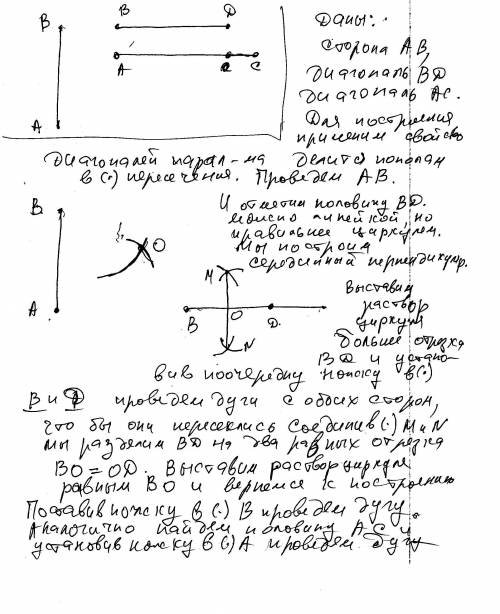 B
B D
A C
A
Даны:
сторона AB,
диагональ BD
диагональ AC.
Для построения
применим свойство
диагоналей парал-ма делится пополам
в (·) пересечения. Проведем AB.
B
A
O
И отметим половину BD.
можно линейкой, но
правильнее циркулем.
Мы построим
серединный перпендикуляр.
M
B O D.
N
Выставим
раствор
циркуля
больше отрезка
BO и устано-
вив поочередну ножку в (·)
B и D проведем дуги с обоих сторон,
что бы они пересеклись соединив (·) M и N
мы разделим BD на два равных отрезка
BO = OD. Выставим раствор циркуля
равным BO и вернемся к построению
Поставив ножку в (·) B проведем дугу.
Аналогично найдем половину AC и
установив ножку в (·) A проведем дугу